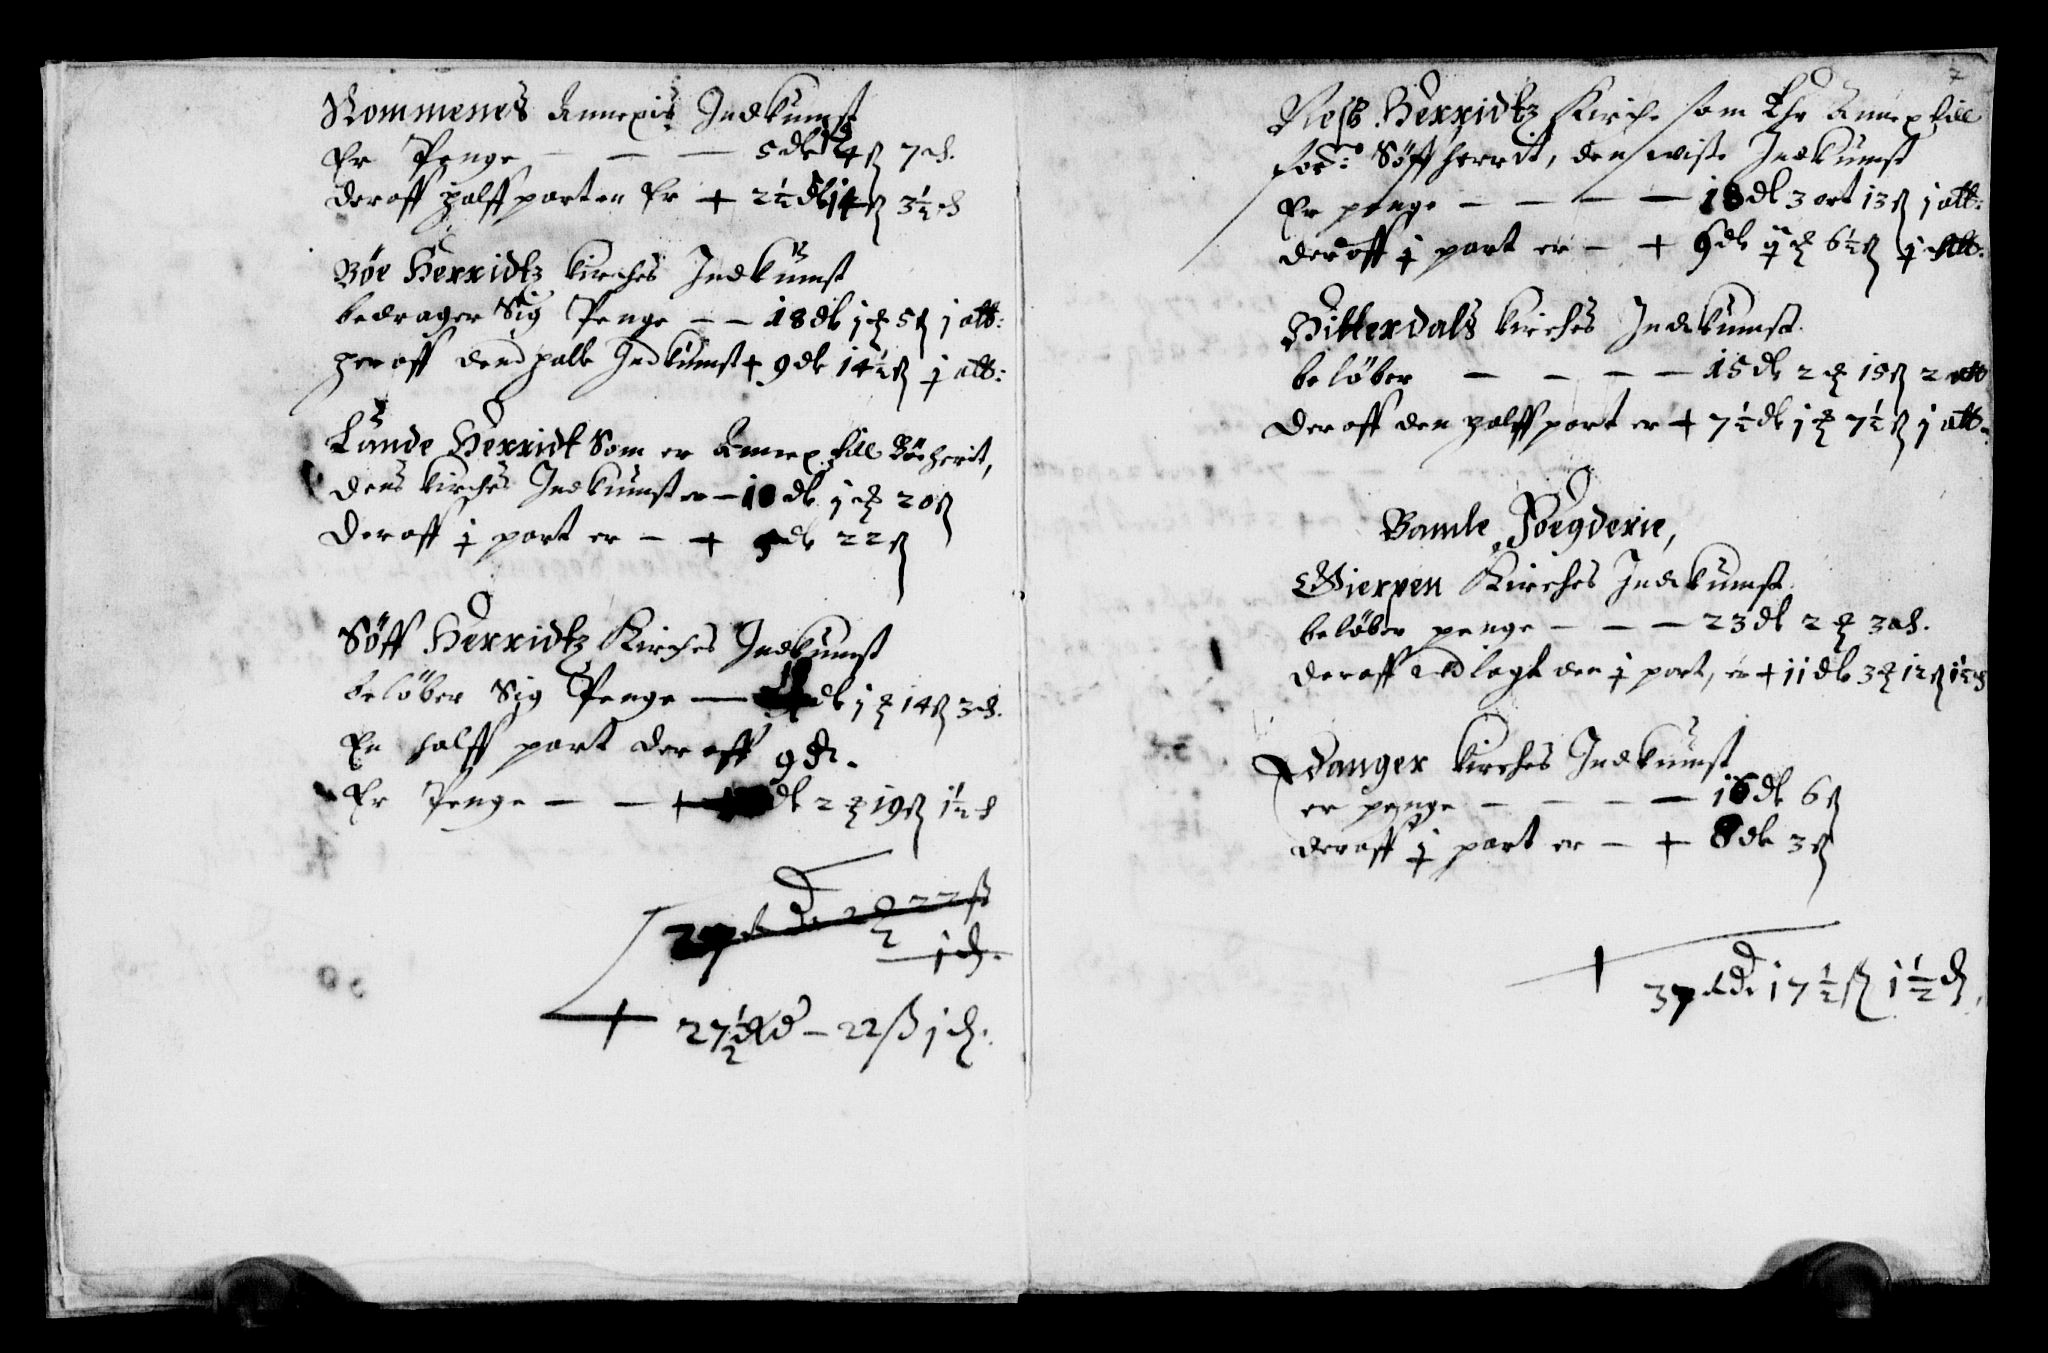 Rommenes Annexis Indkumst
Er Penge — — — 5 dlr 4 ß 7 ₰.
deroff halff parten Er + 2½ dlr 14 ß 3½ ₰
Bøe Herridtz kirches Indkumst
bedrager Sig Penge — — 18 dlr j ort 5 ß j alb:
heroff dend halle Indkumst + 9 dlr 14½ ß ½ alb:
Lunde Herridt Som er Annex till Böeherit,
dens kirches Indkumst er — 10 dlr j ort 20 ß
Deroff ½ part er — + 5 dlr 22 ß
Söff Herridtz Kirches Indkumst
belöber Sig Penge — dlr j ort 14 ß 3 ₰.
En halff part deroff 9 dr.
Er Penge — — + dlr 2 ort 19 ß 1½ ₰
27 dr 2 ort 22 ß
1 ₰.
+ 27½ Rd — 22 ß j ₰.
Nesb Herridtz Kirche som Ehr Annex till
for: Söffherrit, den wiste Indkumst
Er penge — — — — 18 dlr 3 ort 13 ß j alb:
deroff ½ part er — + 9 dlr j ort 6½ ß ½ alb:
Hitterdals kirches Indkumst
belöber — — — — 15 dlr 2 ort 15 ß 2 alb
Deroff den halffpart er + 7½ dlr j ort 7½ ß j alb.
Bamle Foegderie,
Gierpen Kirches Indkumst
belöber penge — — — 23 dlr 2 ort 3 ₰.
deroff udlagt den ½ part, er + 11 dlr 3 ort 12 ß 1½ ₰
Edanger kirches Indkumst
er penge — — — — 16 dlr 6 ß
deroff ½ part er — + 8 dlr 3 ß
+ 37 Rdr 17½ ß 1½ ₰.